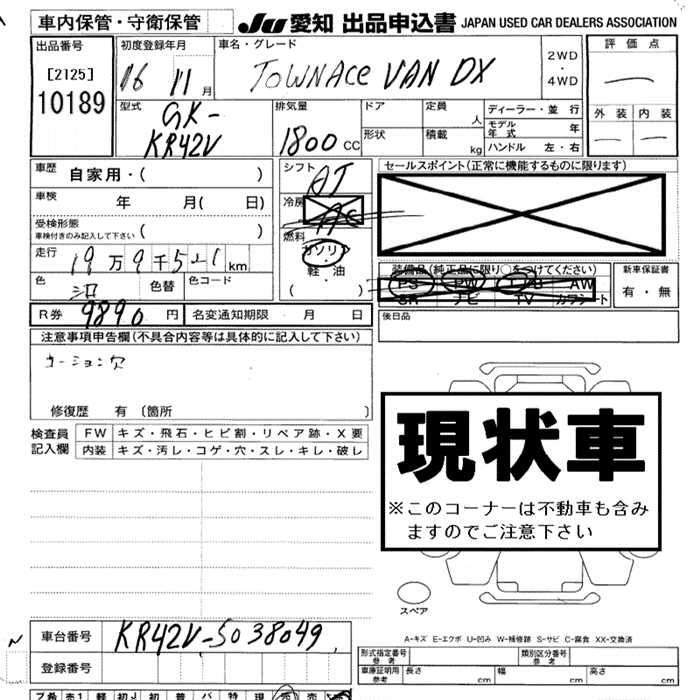 車内保管・守衛保管
JU 愛知 出品申込書 JAPAN USED CAR DEALERS ASSOCIATION
出品番号
[2125]
10189
初度登録年月
16 11月
車名・グレード
TOWNACE VAN DX
2WD
・
4WD
評価点
外装 内装
型式
GK-
KR42V
排気量
1800 CC
ドア
形状
定員 人
積載 kg
ディーラー・並行
モデル年式 年
ハンドル 左・右
車歴 自家用・( )
車検 年 月( 日)
受検形態
車検付きのみ記入して下さい ( )
走行 19万9千521km
色 シロ 色替 色コード
R券 9890円 名変通知期限 月 日
シフト AT
冷房 AC
燃料
ガソリン
・
軽・油
( )
セールスポイント(正常に機能するものに限ります)
装備品(純正品に限り○をつけてください)
PS PW エアB AW
SR ナビ TV カワシート
新車保証書
有・無
後日品
注意事項申告欄(不具合内容等は具体的に記入して下さい)
修復歴 有〔箇所 〕
検査員
記入欄
FW キズ・飛石・ヒビ割・リペア跡・X要
内装 キズ・汚レ・コゲ・穴・スレ・キレ・破レ
現状車
※このコーナーは不動車も含み
ますのでご注意下さい
スペア
A-キズ E-エクボ U-凹み W-補修跡 S-サビ C-腐食 XX-交換済
車台番号 KR42V-5038049
登録番号
形式指定番号
参考
類別区分番号
参考
車庫証明用
参考
長さ cm 幅 cm 高さ cm